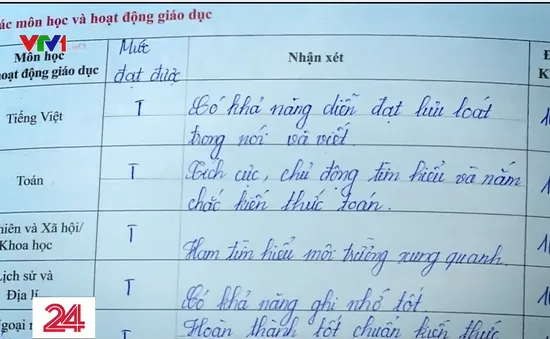 ác môn học và hoạt động giáo dục
VTV1
Môn học
hoạt động giáo dục
Mức
đạt được
Nhận xét
Tiếng Việt
T
Có khả năng diễn đạt lưu loát
trong nói và viết.
Toán
T
Tích cực, chủ động tìm hiểu và nắm
chắc kiến thức toán.
hiên và Xã hội/
Khoa học
T
Ham tìm hiểu môi trường xung quanh.
Lịch sử và
Địa lí
T
Có khả năng ghi nhớ tốt
24
T
Hoàn thành tốt chuẩn kiến thức